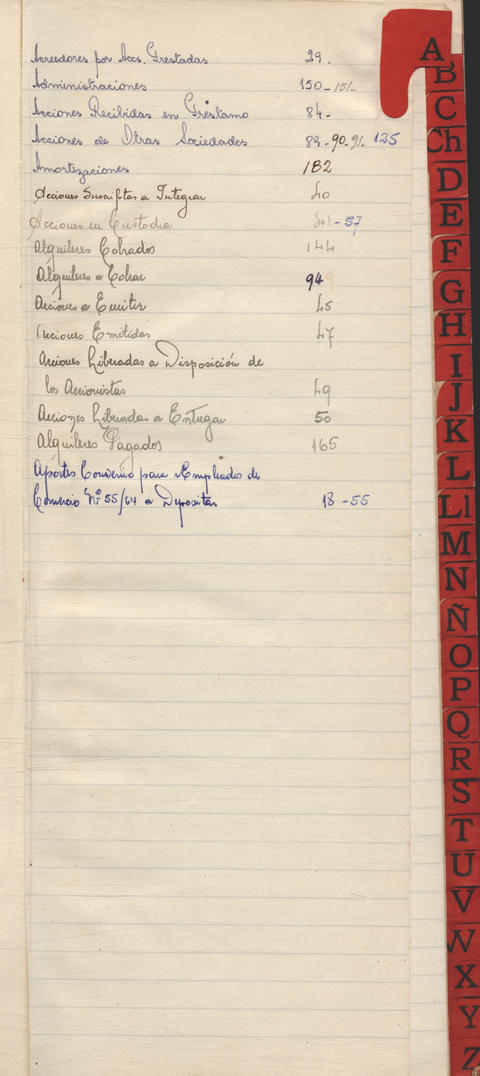 Acreedores por Accs. Prestadas 29.
Administraciones 150-151-
Acciones Recibidas en Préstamo 84-
Acciones de Otras Sociedades 89-90-91- 125
Amortizaciones 182
Acciones Suscriptas a Integrar 40
Acciones en Custodia 41-57
Alquileres Cobrados 144
Alquileres a Cobrar 94
Acciones a Emitir 45
Acciones Emitidas 47
Acciones Liberadas a Disposición de
los Accionistas 49
Acciones Liberadas a Entregar 50
Alquileres Pagados 165
Aportes Convenio para Empleados de
Comercio Nº 55/64 a Depositar 18-55
A
B
C
Ch
D
E
F
G
H
I
J
K
L
Ll
M
N
Ñ
O
P
Q
R
S
T
U
V
W
X
Y
Z